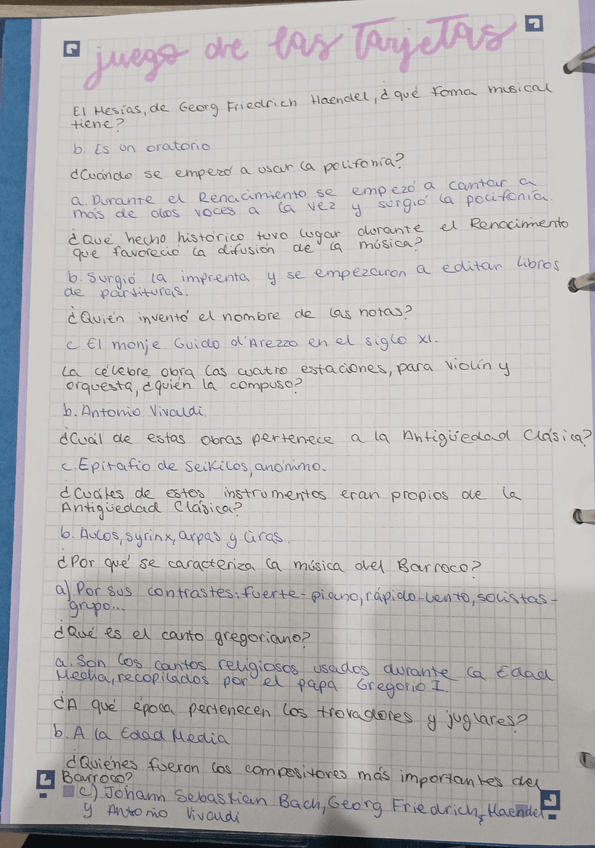 juego de las Tarjetas
El Mesías, de Georg Friedrich Haendel, ¿qué foma musical
tiene?
b. Es un oratorio
¿Cuándo se empezó a usar la polifonía?
a. Durante el Renacimiento se empezó a cantar a
más de dos voces a la vez y surgió la polifonía.
¿Qué hecho histórico tuvo lugar durante el Renacimento
que favoreció la difusión de la música?
b. Surgió la imprenta y se empezaron a editar libros
de partituras.
¿Quién inventó el nombre de las notas?
c El monje Guido d'Arezzo en el siglo XI.
La célebre obra Las cuatro estaciones, para violín y
orquesta, ¿quién la compuso?
b. Antonio Vivaldi
¿Cuál de estas obras pertenece a la Antigüedad Clásica?
c. Epitafio de Seikilos, anónimo.
¿Cuáles de estos instrumentos eran propios de la
Antigüedad Clásica?
b. Aulos, syrinx, arpas y liras.
¿Por qué se caracteriza la música del Barroco?
a) Por sus contrastes: fuerte-piano, rápido-lento, solistas-
grupo...
¿Qué es el canto gregoriano?
a. Son los cantos religiosos usados durante la Edad
Media, recopilados por el papa Gregorio I.
¿A qué época pertenecen los trovadores y juglares?
b. A la Edad Media
¿Quiénes fueron los compositores más importantes del
Barroco?
c) Johann Sebastian Bach, Georg Friedrich Haendel
y Antonio Vivaldi